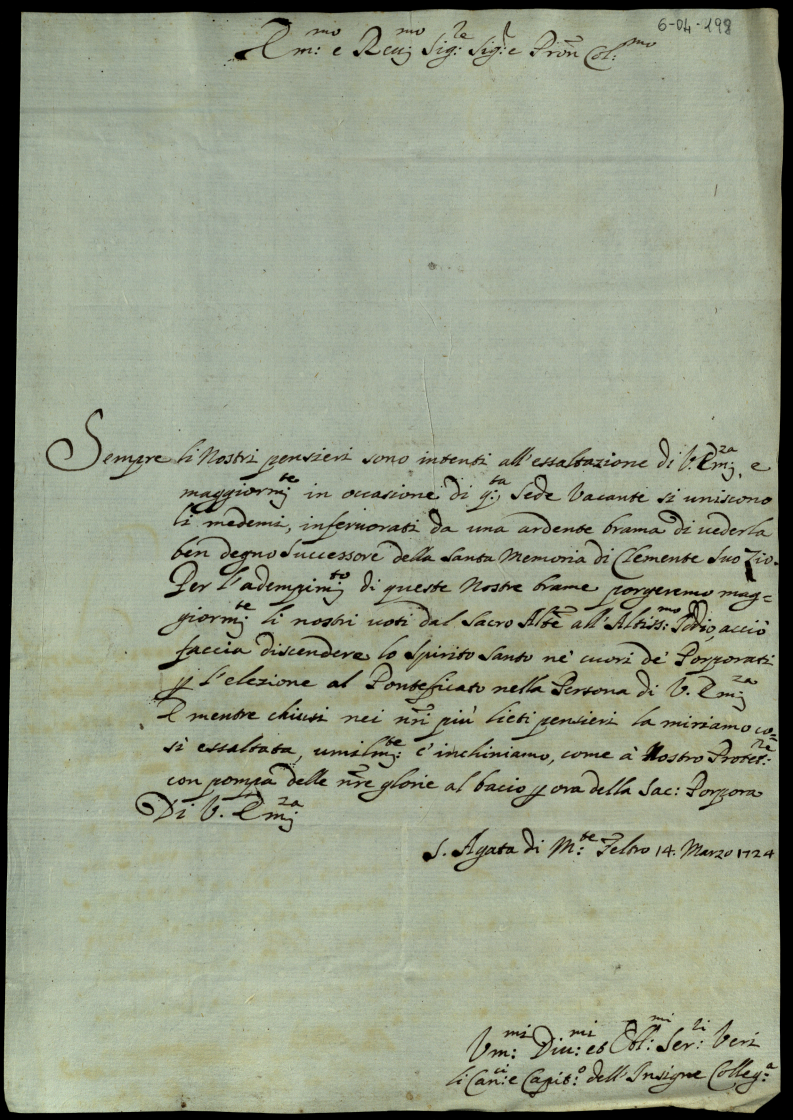 6-04-198
Em:mo e Reu:mo Sig:re Sig:r e Pron Col:mo
Sempre li Nostri pensieri sono intenti all'essaltazione di V. Em:za, e
maggiorm:te in occasione di q:ta Sede Vacante si uniscono
li medemi, inferuorati da una ardente brama di uederla
ben degno Successore della Santa Memoria di Clemente suo Zio.
Per l'adempim:to di queste Nostre brame porgeremo mag=
giorm:te li nostri uoti dal Sacro Alte all'Altiss:mo Iddio, acciò
faccia discendere lo Spirito Santo ne' cuori de' Porporati
p l'elezione al Ponteficato nella Persona di V. Em:za
E mentre chiusi nei nri più lieti pensieri la miriamo co=
sì essaltata, umilm:te c'inchiniamo, come à Nostro Protet:re
con pompa delle nre glorie al bacio p ora della Sac: Porpora
Di V. Em:za
S. Agata di M:te Feltro 14. Marzo 1724
Vm:mi Diu:mi et Obl:mi Ser:ri Veri
li Can:ci e Capit:o dell'Insigne Colleg:a